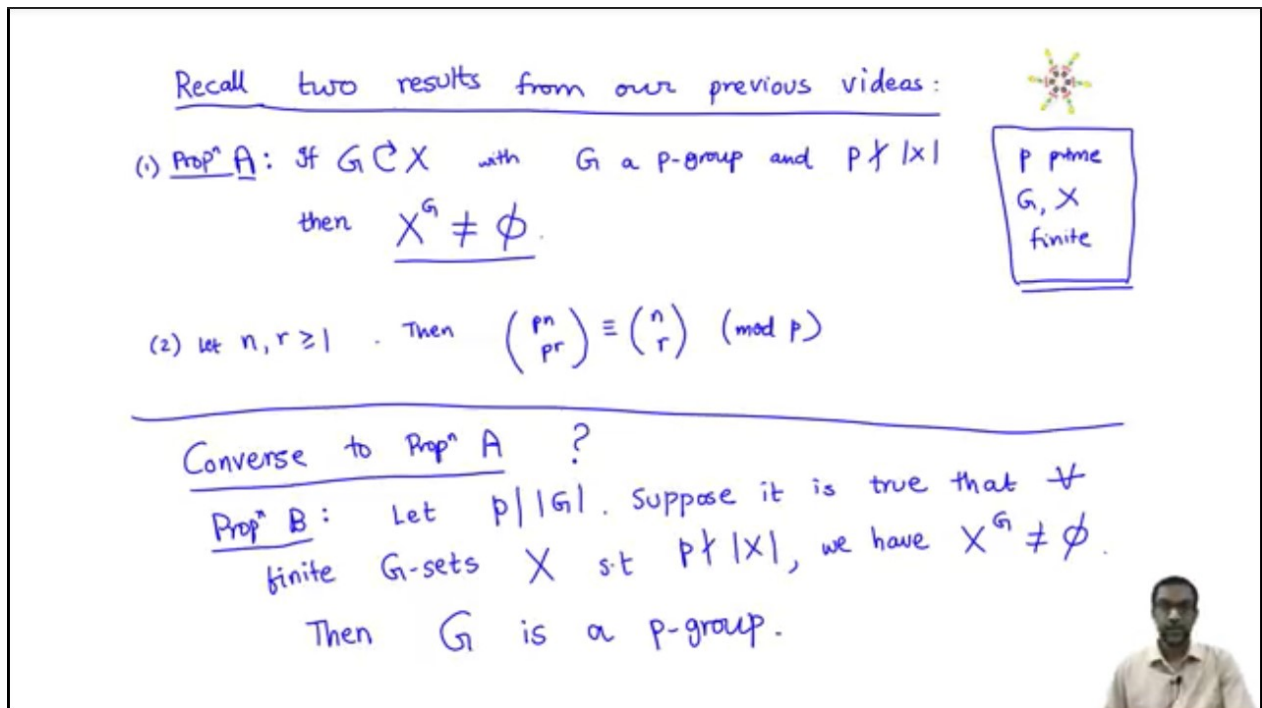 Recall two results from our previous videas:
(1) Propⁿ A: If G ⟳ X with G a p-group and p ∤ |X|
then X^G ≠ ϕ.
p prime
G, X
finite
(2) Let n, r ≥ 1. Then (pn pr) ≡ (n r) (mod p)
Converse to Propⁿ A ?
Propⁿ B: Let p | |G|. Suppose it is true that ∀
finite G-sets X s.t p ∤ |X|, we have X^G ≠ ϕ.
Then G is a p-group.